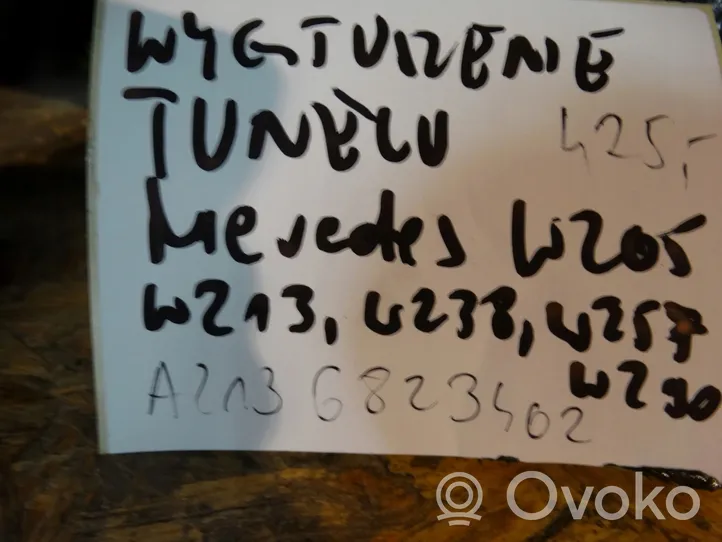 WYGŁUSZENIE
TUNELU 425,-
Mercedes W205
W213, W238, W257
W290
A2136823402
Ovoko